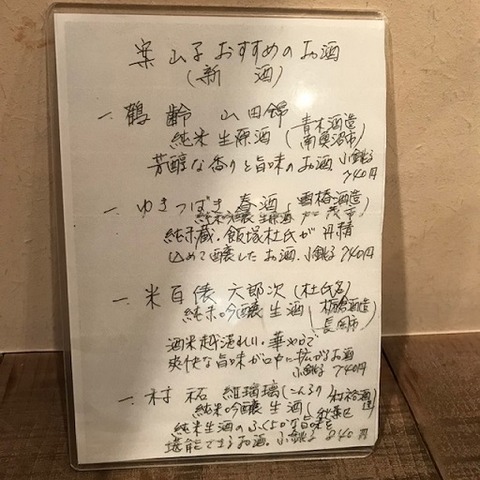 案山子おすすめのお酒
(新 酒)
一、鶴齢 山田錦
純米生原酒 (青木酒造
南魚沼市)
芳醇な香りと旨味のお酒 小銚子
740円
一、ゆきつばき 春酒 (雪椿酒造
純米吟醸 生原酒 加茂市)
純米蔵、飯塚杜氏が丹精
込めて醸したお酒.小銚子 740円
一、米百俵 六郎次(杜氏名)
純米吟醸生酒 (栃倉酒造
長岡市)
酒米越淡麗い、華やかで
爽快な旨味が口中に拡がるお酒
小銚子 740円
一、村祐 紺瑠璃(こんるり) 村祐酒造
純米吟醸生酒 (秋葉区
純米生酒のふくよかな旨味を
堪能できるお酒.小銚子 840円